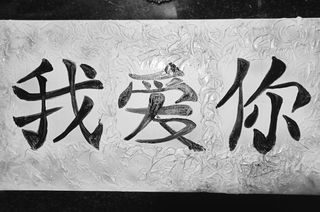 我爱你